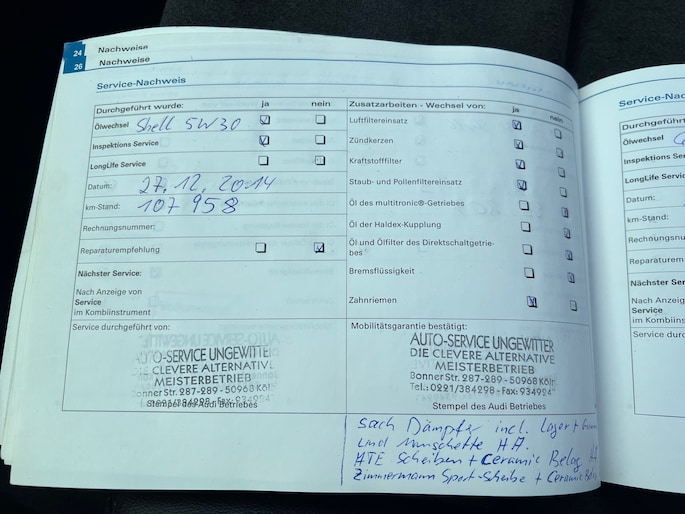 24 Nachweise
26 Nachweise
Service-Nachweis
Durchgeführt wurde: ja nein
Ölwechsel Shell 5W30
Inspektions Service
LongLife Service
Datum: 27.12.2014
km-Stand: 107 958
Rechnungsnummer:
Reparaturempfehlung
Nächster Service:
Nach Anzeige von
Service
im Kombiinstrument
Service durchgeführt von:
AUTO-SERVICE UNGEWITTER
DIE CLEVERE ALTERNATIVE
MEISTERBETRIEB
Bonner Str. 287-289 - 50968 Köln
0221/384298 - Fax: 934294
Stempel des Audi Betriebes
Zusatzarbeiten - Wechsel von: ja nein
Luftfiltereinsatz
Zündkerzen
Kraftstofffilter
Staub- und Pollenfiltereinsatz
Öl des multitronic®-Getriebes
Öl der Haldex-Kupplung
Öl und Ölfilter des Direktschaltgetrie-
bes
Bremsflüssigkeit
Zahnriemen
Mobilitätsgarantie bestätigt:
AUTO-SERVICE UNGEWITTER
DIE CLEVERE ALTERNATIVE
MEISTERBETRIEB
Bonner Str. 287-289 - 50968 Köln
Tel.: 0221/384298 - Fax: 934294
Stempel des Audi Betriebes
Sach Dämpfer incl. Lager +
und Manschette HA.
ATE Scheiben + Ceramic Belag
Zimmermann Sport-Scheibe + Ceramic
Service-Na
Durchgeführt
Ölwechsel
Inspektions Se
LongLife Servic
Datum:
km-Stand:
Rechnungsnu
Reparaturem
Nächster Ser
Nach Anzeig
Service
im Kombiins
Service durc